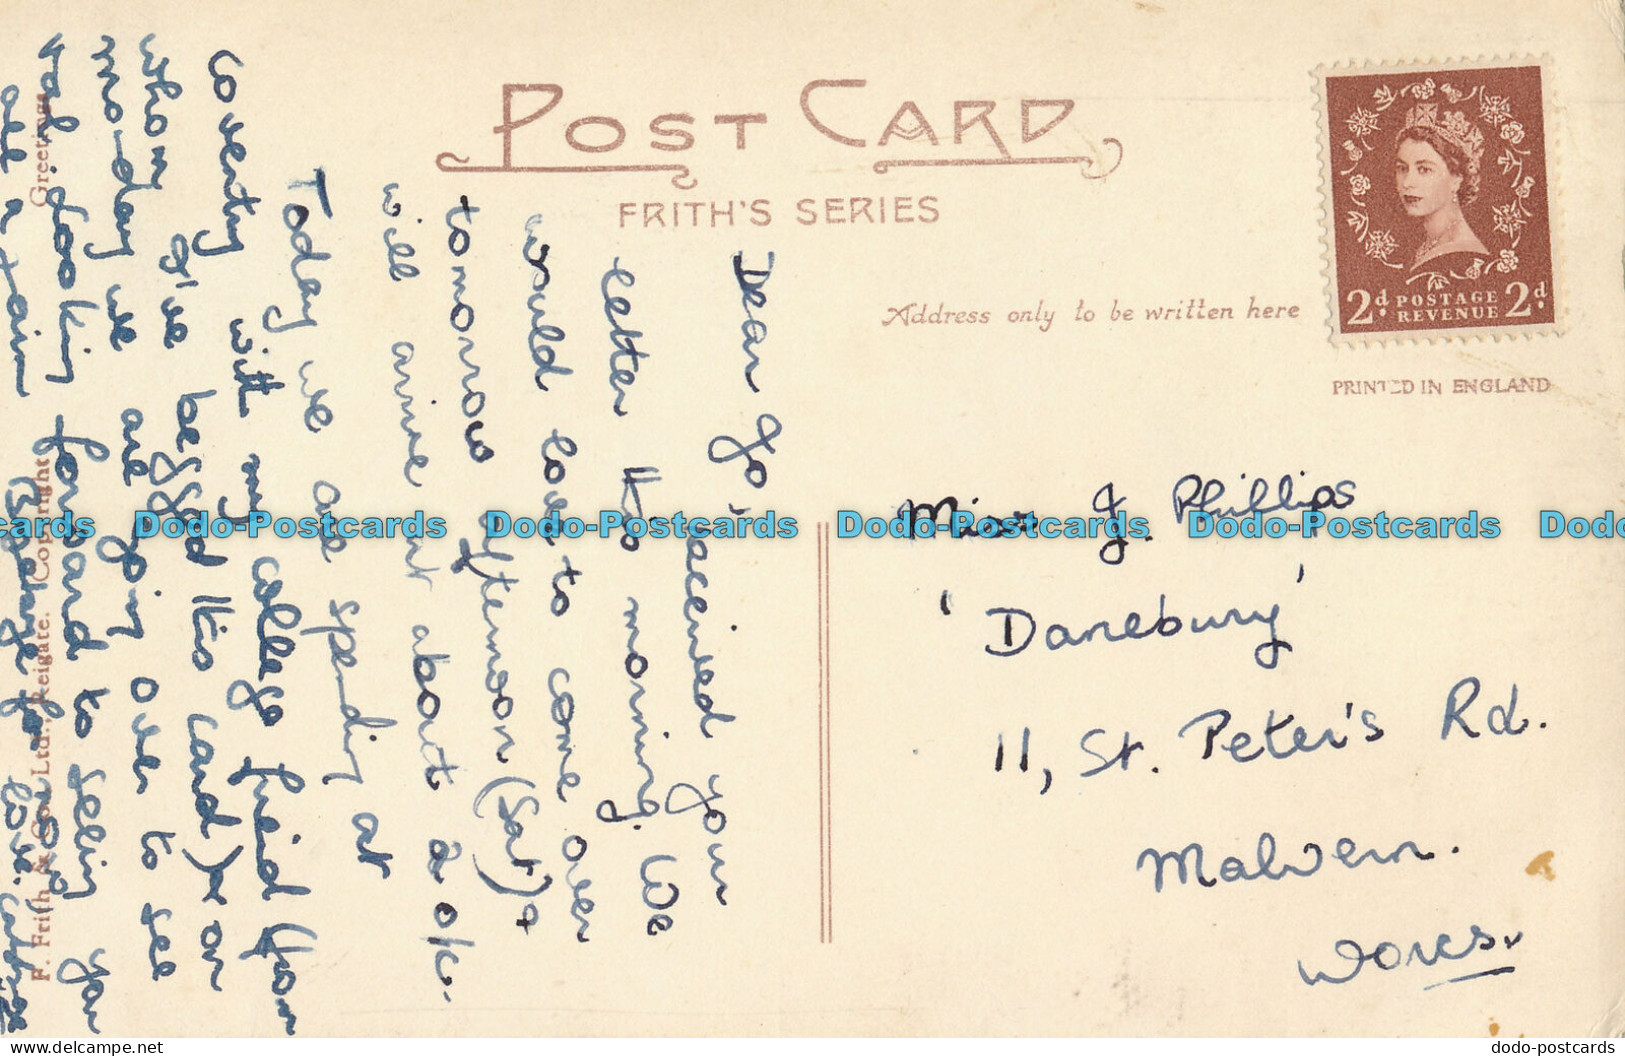 POST CARD
FRITH'S SERIES
Address only to be written here
2d POSTAGE REVENUE 2d
PRINTED IN ENGLAND
Miss J. Phillips
'Danebury'
11, St. Peter's Rd.
Malvern.
Worcs.
Dear Jo, received your
letter this morning. We
would love to come over
tomorrow afternoon (Sat) +
will arrive at about 2 o/c.
Today we are spending at
Coventry with my college friend (from
whom I've begged this card) + on
monday we are going over to see
Val. Looking forward to seeing you
all again
love.
Greetings
F. Frith & Co., Ltd., Reigate. Copyright
Dodo-Postcards Dodo-Postcards Dodo-Postcards Dodo-Postcards
dodo-postcards